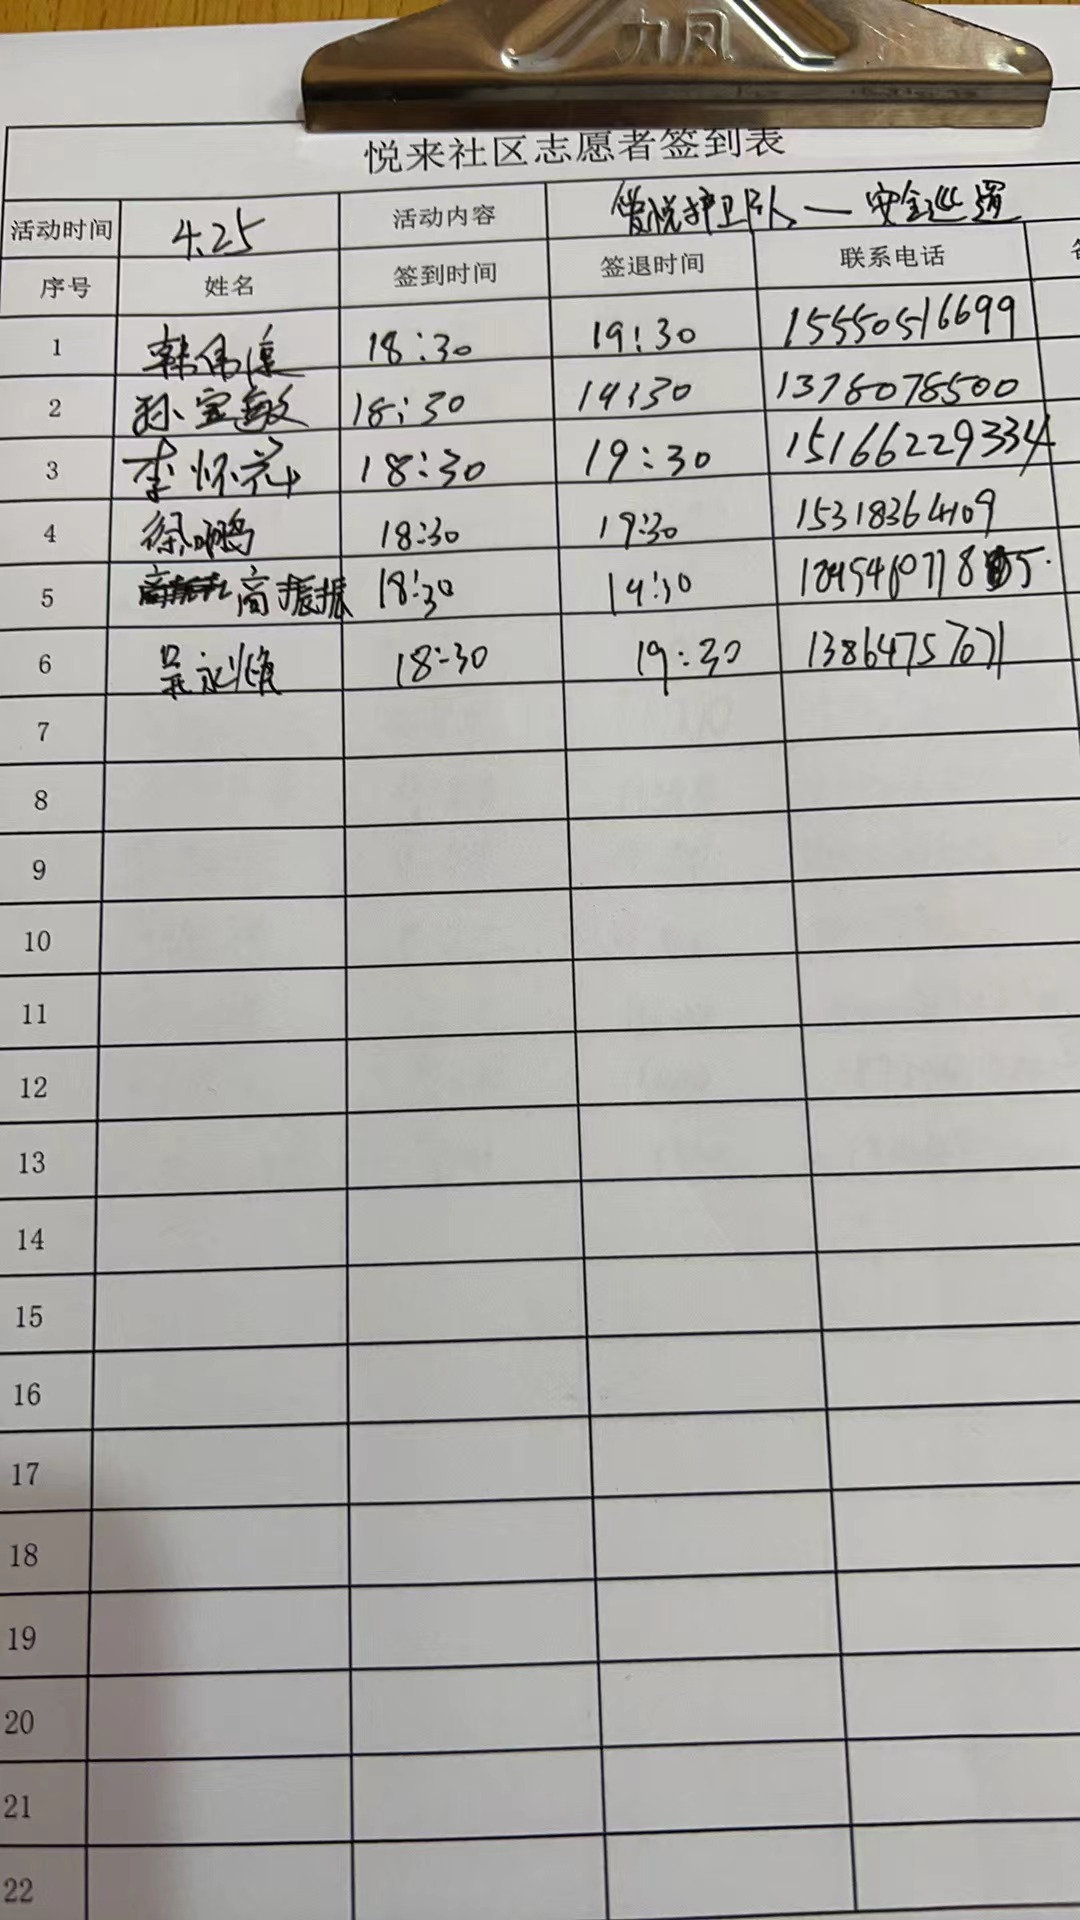 力凤
悦来社区志愿者签到表
活动时间 4.25 活动内容 爱悦护卫队—安全巡逻
序号 姓名 签到时间 签退时间 联系电话
1 韩伟 18:30 19:30 15550516699
2 孙宝敏 18:30 19:30 1378078500
3 李怀花 18:30 19:30 15166229334
4 徐鹏 18:30 19:30 15318364109
5 高振振 18:30 19:30
6 吴永 18:30 19:30 13864757071
7
8
9
10
11
12
13
14
15
16
17
18
19
20
21
22